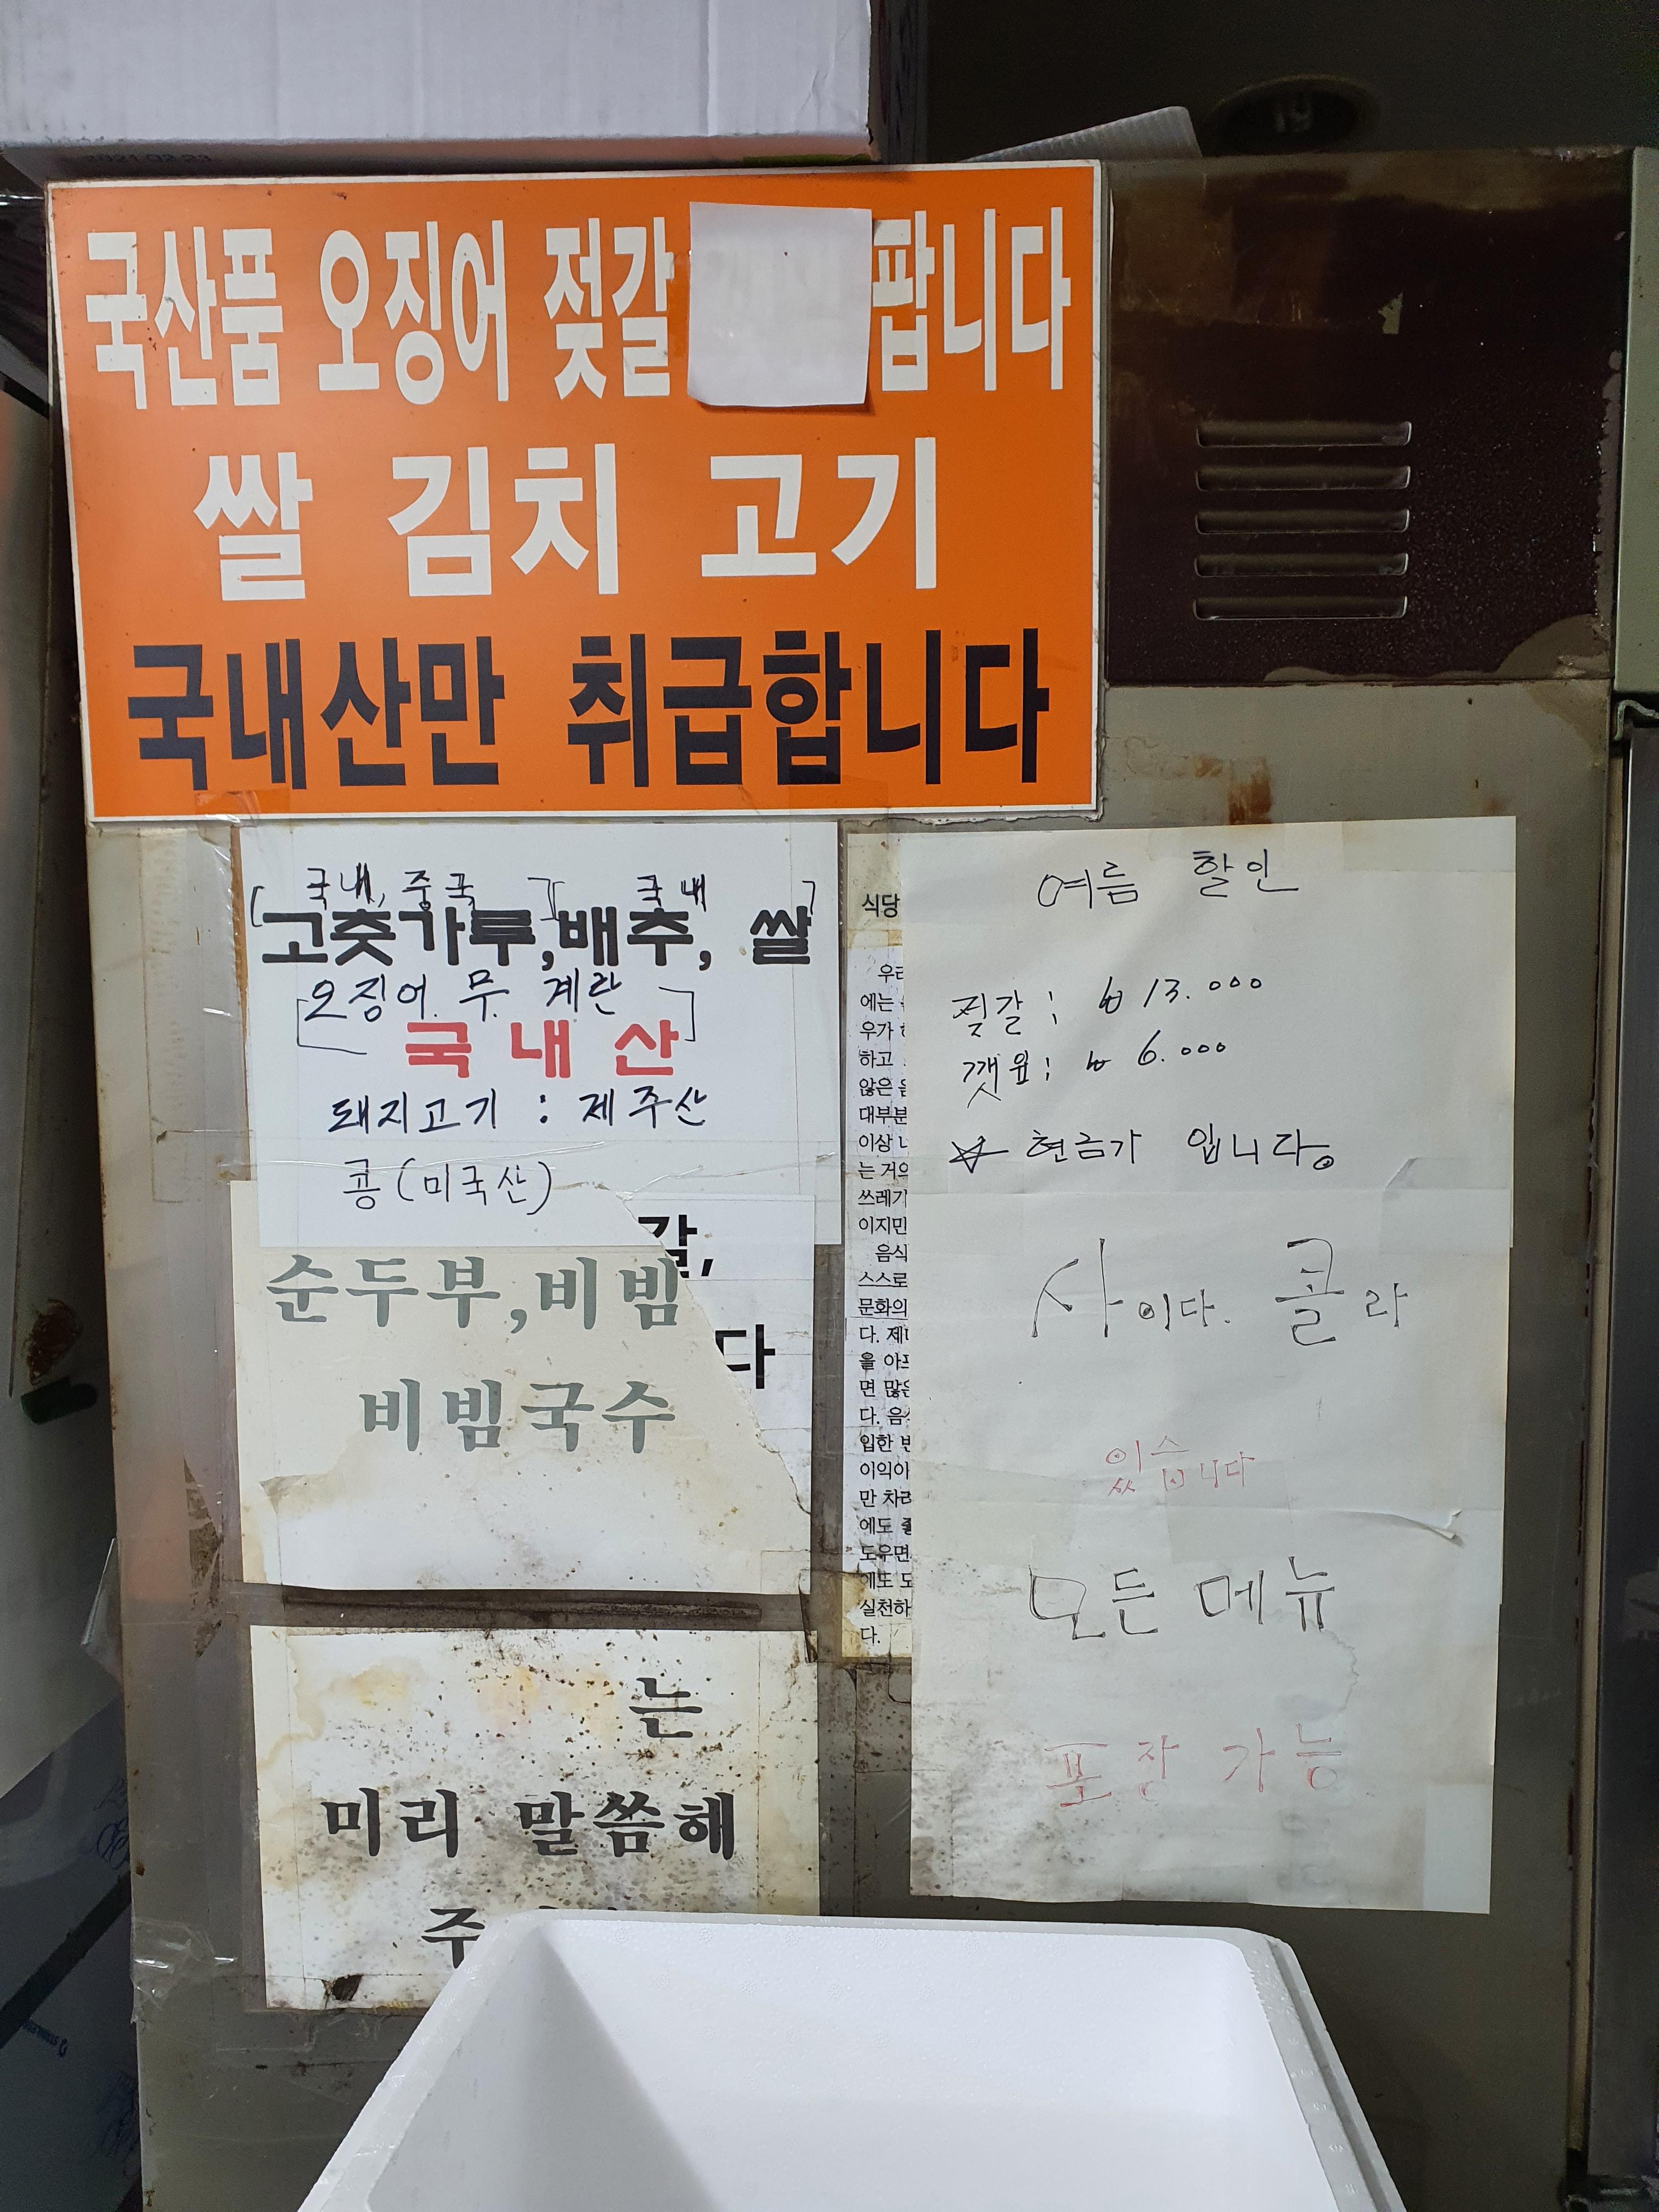 2021.02.23
국산품 오징어 젖갈 팝니다
쌀 김치 고기
국내산만 취급합니다
[국내, 중국] [국내]
고춧가루,배추, 쌀
[오징어. 무. 계란]
국내산
돼지고기 : 제주산
콩(미국산)
갈,
순두부,비빔
다
비빔국수
는
미리 말씀해
주
식당
우리
에는
우가
하고
않은 음
대부분
이상
는 거의
쓰레기
이지만
음식
스스로
문화의
다. 제
을 아
면 많은
다. 음
입한
이익이
만 차려
에도
도우면
에도 도
실천하
다.
여름 할인
젖갈: ₩13.000
깻잎: ₩6.000
☆ 현금가 입니다.
사이다. 콜라
있습니다
모든 메뉴
포장 가능